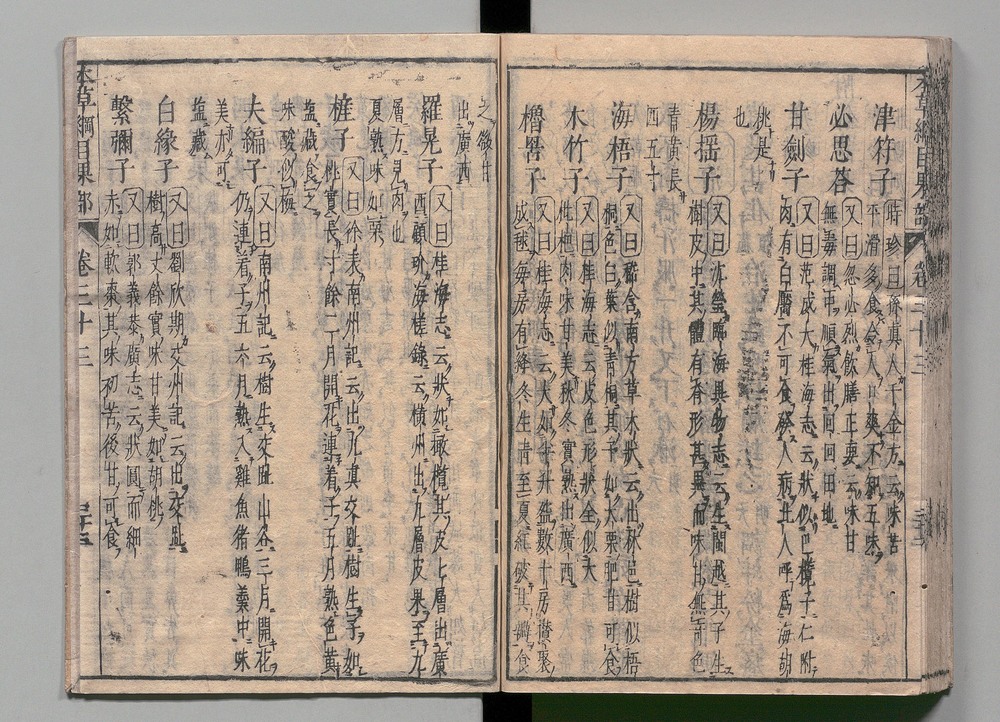 津符子 時珍曰孫真人千金方云味苦
平滑多食令人口爽不知五味
必思答 又曰忽必烈飲膳正要云味甘
無毒調中順氣出回回田地
甘劍子 又曰范成大桂海志云狀似巴欖子仁附
肉有白靨不可食發人病北人呼為海胡
桃是
也
楊搖子 又曰沈瑩臨海異物志云生閩越其子生
樹皮中其體有脊形甚異而味甘無奇色
青黃長
四五寸
海梧子 又曰嵇含南方草木狀云出林邑樹似梧
桐色白葉似青桐其子如大栗肥甘可食
木竹子 又曰桂海志云皮色形狀全似大
枇杷肉味甘美秋冬實熟出廣西
櫓罟子 又曰桂海志云大如半升盌數十房攢聚
成毬每房有縫冬生青至夏紅破其瓣食
之微甘
出廣西
羅晃子 又曰桂海志云狀如橄欖其皮七層出廣
西顧玠海槎錄云橫州出九層皮果至九
層方見肉也
夏熟味如栗
桪子 又曰徐表南州記云出九真交趾樹生子如
桃實長寸餘二月開花連着子五月熟色黃
鹽藏食之
味酸似梅
夫編子 又曰南州記云樹生交趾山谷三月開花
仍連着子五六月熟入雞魚豬鴨羹中味
美亦可
鹽藏
白緣子 又曰劉欣期交州記云出交趾
樹高丈餘實味甘美如胡桃
繫彌子 又曰郭義恭廣志云狀圓而細
赤如軟棗其味初苦後甘可食
本草綱目果部 卷三十三